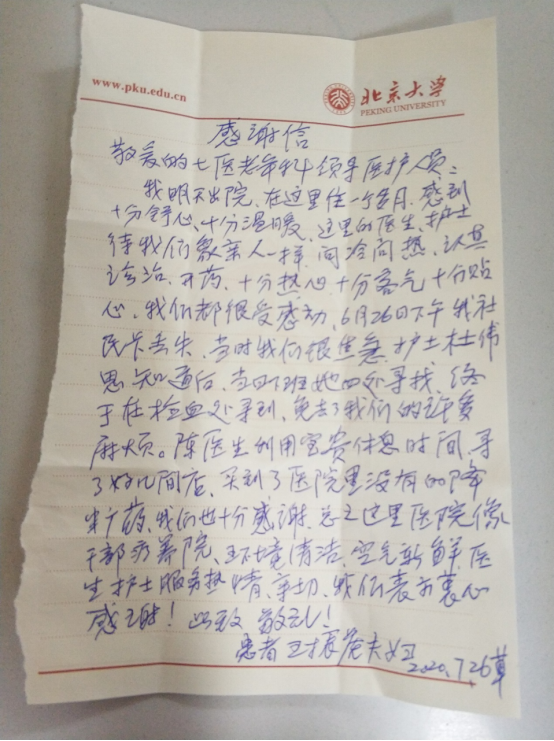 www.pku.edu.cn
北京大学
PEKING UNIVERSITY
感谢信
敬爱的七医老年科领导医护人员:
我明天出院、在这里住一个月、感到
十分舒心、十分温暖、这里的医生、护士
待我们象亲人一样、问冷问热、认真
诊治、开药、十分热心十分客气十分贴
心、我们都很受感动、6月26日下午我社
民卡丢失、当时我们很焦急、护士杜伟
思知道后、当即下班她四处寻找、终
于在检血处寻到、免去了我们的许多
麻烦。陈医生利用宝贵休息时间、寻
了好几间店、买到了医院里没有的降
药、我们也十分感谢、总之这里医院像
干部疗养院、环境清洁、空气新鲜医
生护士服务热情、亲切、我们表示衷心
感谢! 此致 敬礼!
患者 王振 夫妇
2020.7.26草